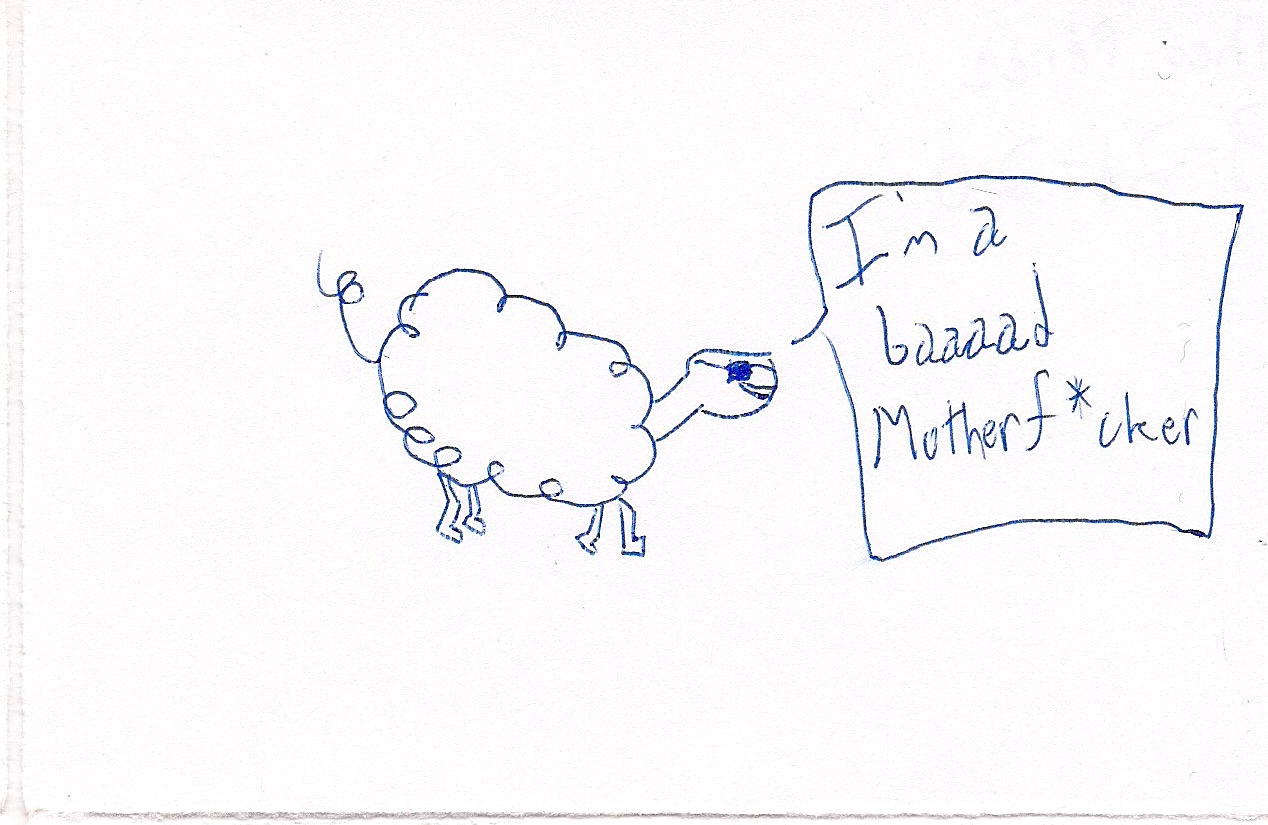 I'm a
baaaad
Motherf*cker